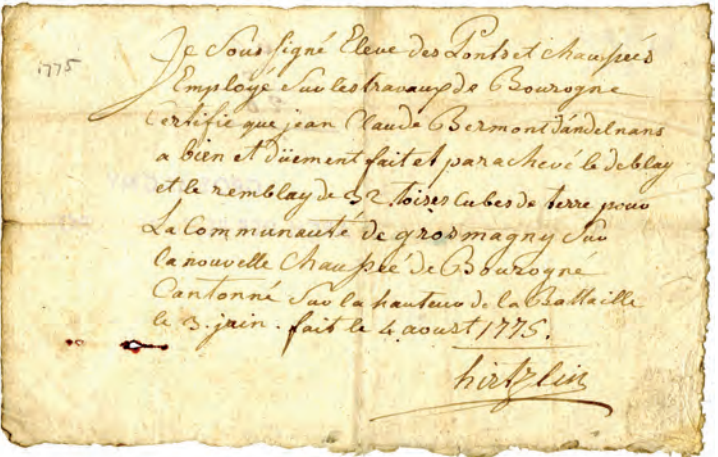 1775
Je Soussigné Eleve des Ponts et chaussées
Employé Sur les travaux de Bourogne
Certifie que jean Claude Bermont d'andelnans
a bien et düement fait et parachevé le deblay
et le remblay de 32 toises Cubes de terre pour
La Communauté de grosmagny Sur
la nouvelle Chaussée de Bourogne
Cantonné Sur la hauteur de la Battaille
le 3. juin. fait le 4 aoust 1775.
hirtzlin